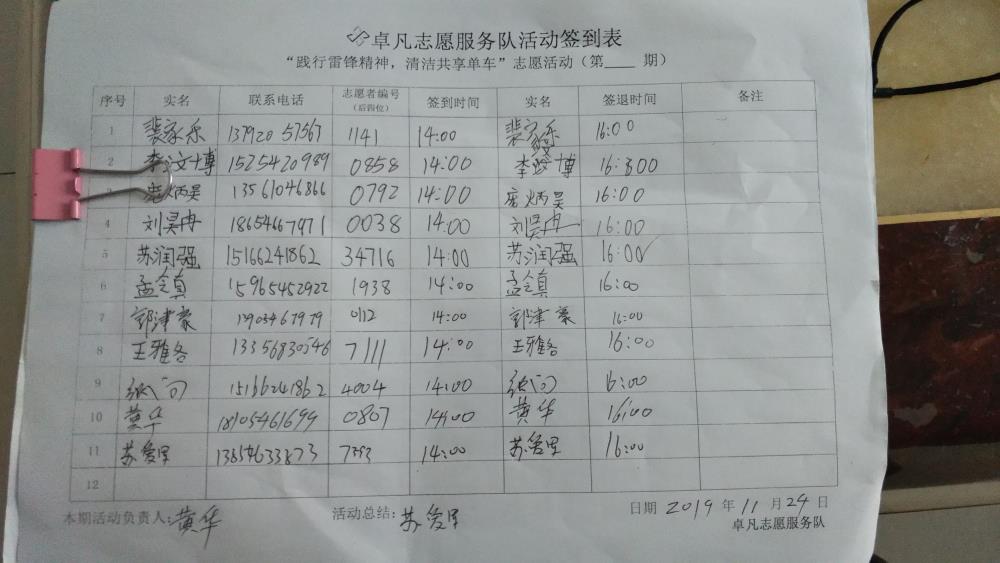 卓凡志愿服务队活动签到表
“践行雷锋精神，清洁共享单车”志愿活动（第____ 期）
序号 实名 联系电话 志愿者编号（后四位） 签到时间 实名 签退时间 备注
1 裴家乐 13792057567 1141 14:00 裴家乐 16:00
2 李文博 1525420989 0858 14:00 李文博 16:300
3 炳昊 13561046866 0792 14:00 炳昊 16:00
4 刘昊冉 18654667971 0038 14:00 刘昊冉 16:00
5 苏润强 15166241862 34716 14:00 苏润强 16:00
6 孟令真 15965452922 1938 14:00 孟令真 16:00
7 郭津豪 0112 14:00 郭津豪 16:00
8 王雅各 13356830546 7111 14:00 王雅各 16:00
9 15166241862 4004 14:00 16:00
10 黄华 18105461699 0807 14:00 黄华 16:00
11 苏爱里 13654633873 7393 14:00 苏爱里 16:00
12
本期活动负责人:黄华 活动总结:苏爱里 日期 2019 年 11 月 24 日
卓凡志愿服务队